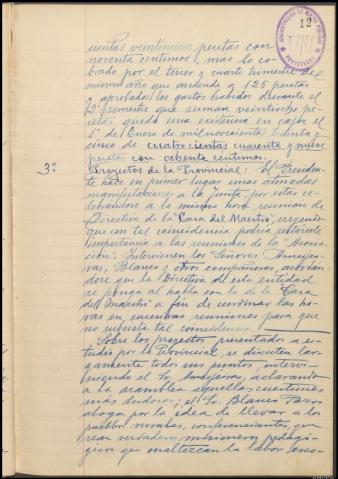 12
PONTEVEDRA
cuentas veintinueve pesetas con
noventa centimos), mas lo co-
brado por el tercer y cuarto trimestre del
mismo año que asciende a 125 pesetas
y aprobados los gastos habidos durante el
2º semestre que suman veintiocho pe-
setas, queda una existencia en caja el
1º de Enero de mil novecientos treinta y
cinco de cuatrocientas cuarenta y nueve
pesetas con ochenta centimos.
3º Proyectos de la Provincial: El Presiden-
te hace en primer lugar unas atinadas
manifestaciones a la Junta por estar ce-
lebandose a la misma hora reunion de
Directiva de la "Casa del Maestro", creyendo
que con tal coincidencia podria restarsele
importancia a las reuniones de la "Asocia-
cion". Intervienen los Señores
Blanco y otros compañeros, acordan-
dose que la Directiva de esta entidad
se ponga al habla con la de la "Casa
del Maestro" a fin de coordinar las ho-
ras en sucesivas reuniones para que
no suceda tal coincidencia.
Sobre los proyectos presentados a es-
tudio por la Provincial, se discuten lar-
gamente todos sus puntos, intervi-
niendo el Sr. aclarando
a la asamblea aquellas cuestiones
más dudosas; el Sr. Blanco
aboga por la idea de llevar a los
pueblos rurales, conferenciantes, que
sean verdaderos misioneros pedagó-
gicos que enaltezcan la labor